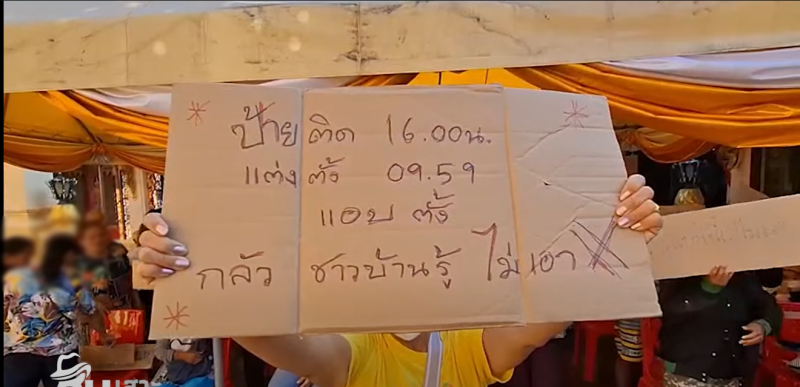 ป้ายติด 16.00น.
แต่งตั้ง 09.59
แอบ ตั้ง
กลัว ชาวบ้านรู้ ไม่เอา